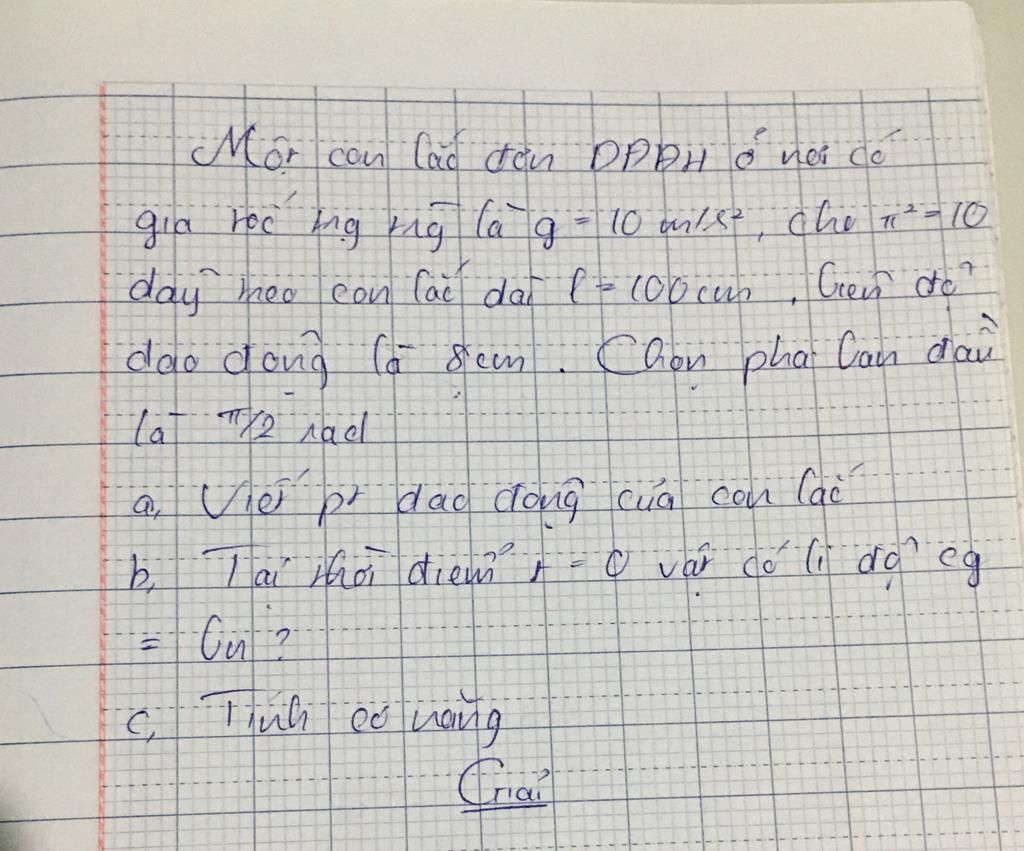 Một con lắc đơn DĐĐH ở nơi có
gia tốc trọng trường là g = 10 m/s², cho π² = 10
dây treo con lắc dài l = 100cm, biên độ
dao động là 8cm. Chọn pha ban đầu
là π/2 rad
a, Viết pt dao động của con lắc
b, Tại thời điểm t = 0 vật có li độ cg
= bn?
c, Tính cơ năng
Giải